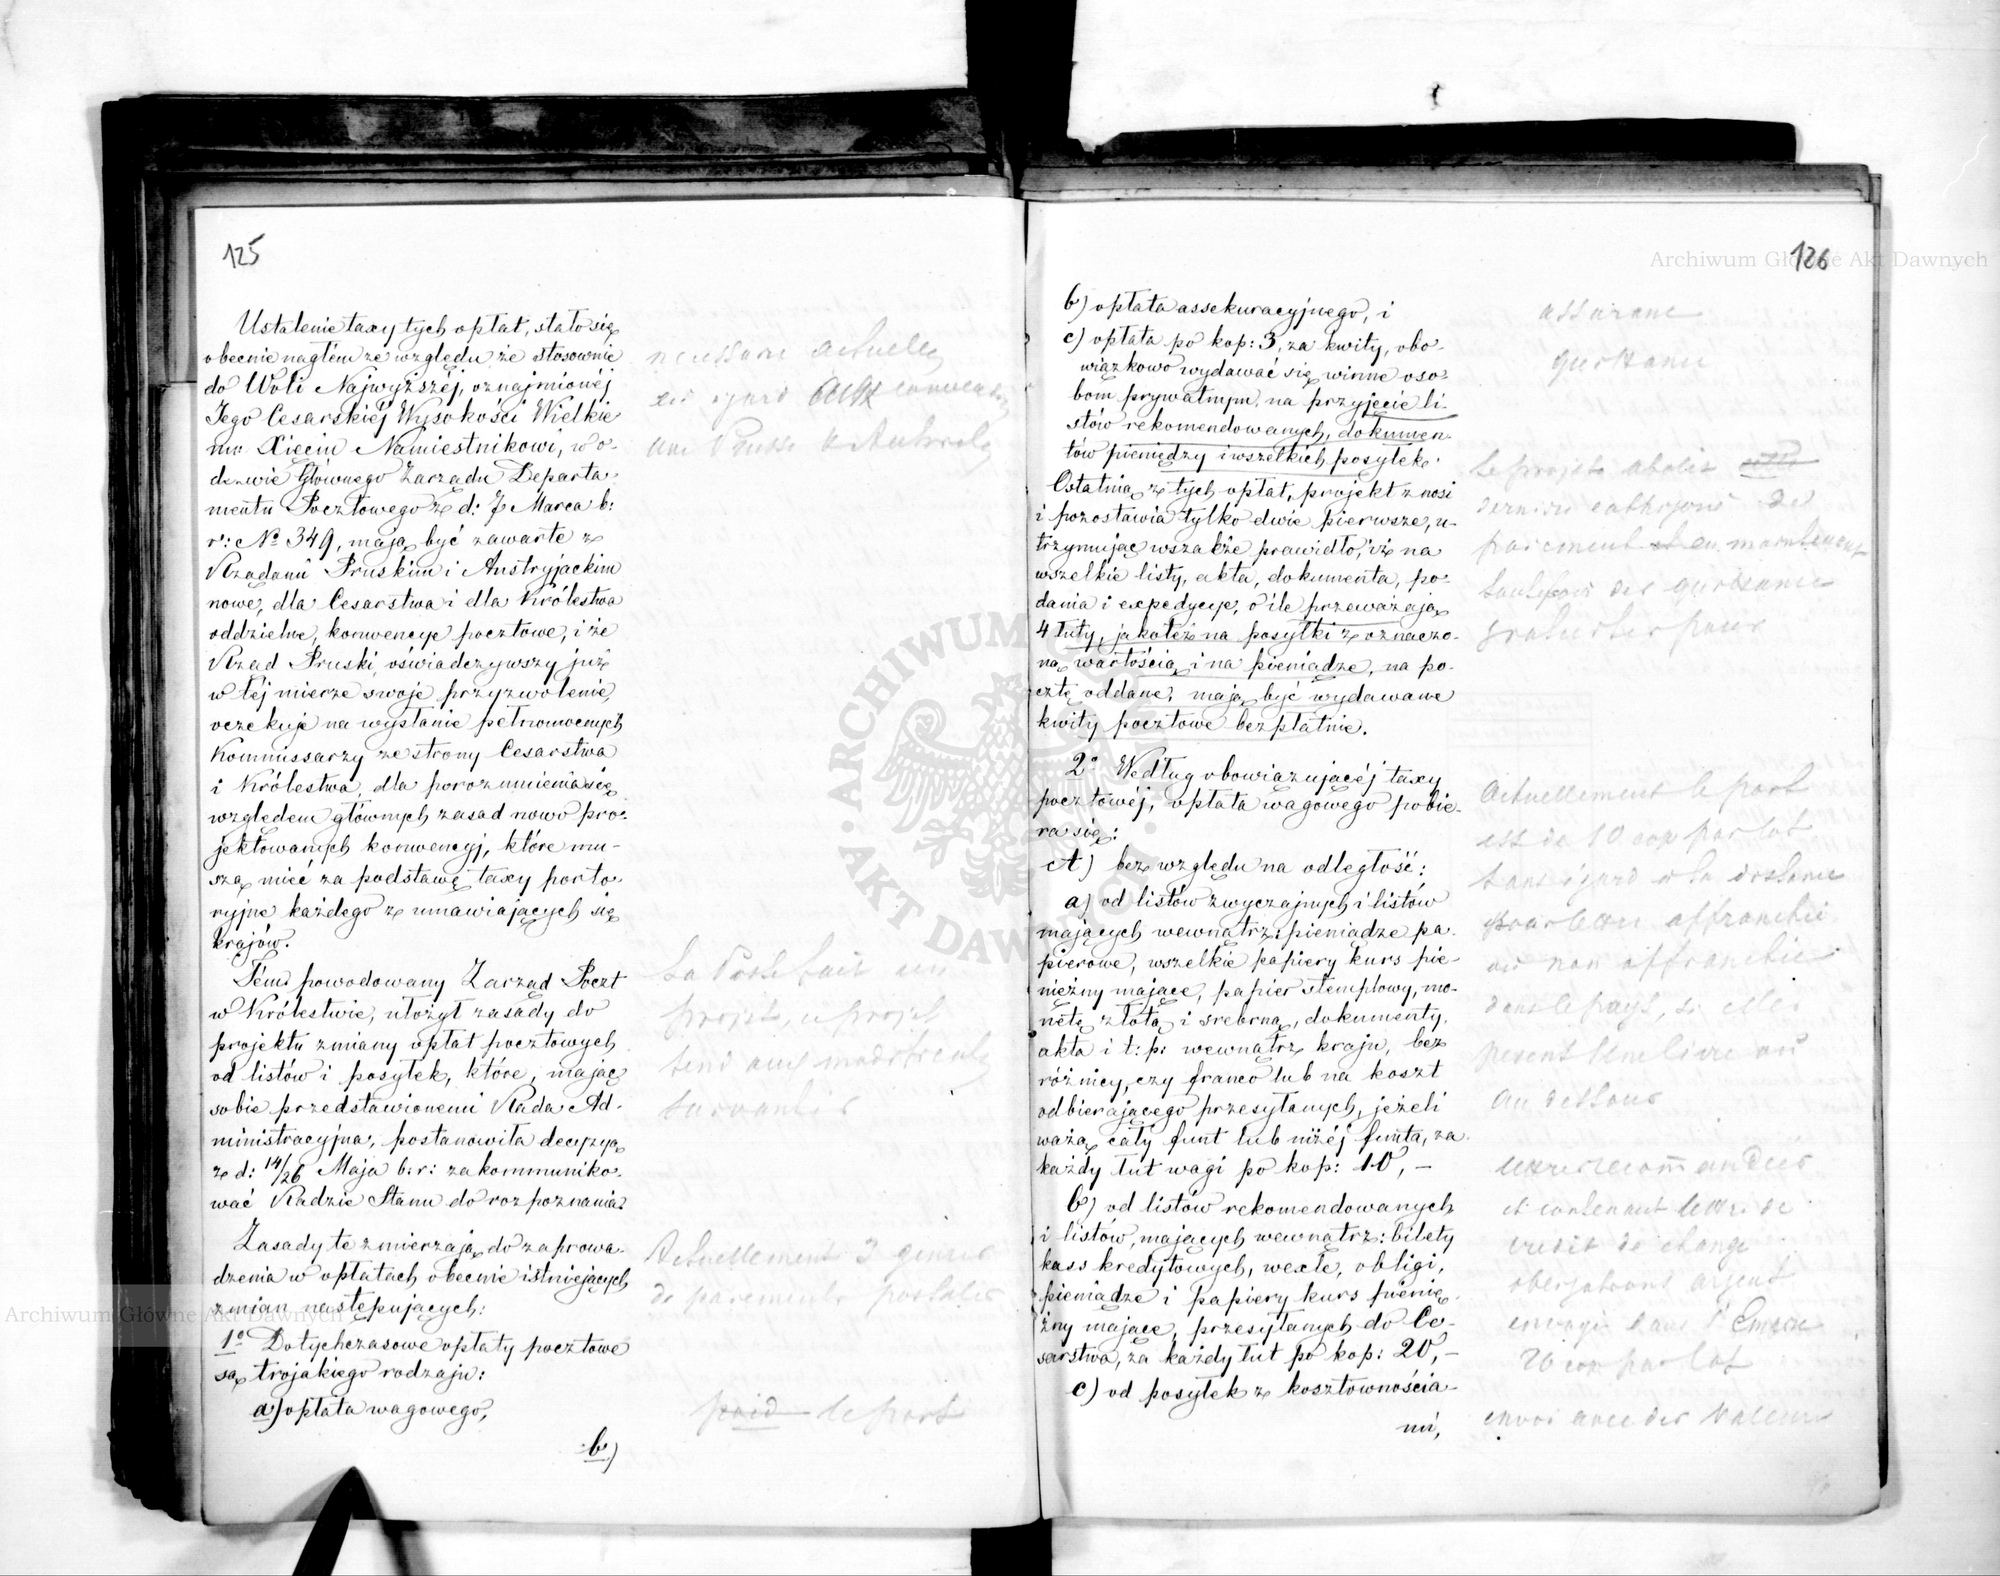 125
Ustalenie taxy tych opłat, stało się
obecnie nagłém ze względu że stosownie
do Woli Najwyższéj, oznajmionéj
Jego Cesarskiéj Wysokości Wielkie
mu Xięciu Namiestnikowi, w o-
dezwie Głównego Zarządu Departa-
mentu Pocztowego z d: 7 Marca b:
r: No 349, mają być zawarte z
Rządami Pruskim i Austryjackim
nowe, dla Cesarstwa i dla Królestwa
oddzielne, konwencye pocztowe, i że
Rząd Pruski, oświadczywszy już
w téj mierze swoje przyzwolenie,
oczekuje na wysłanie pełnomocnych
Kommissarzy ze strony Cesarstwa
i Królestwa, dla porozumienia się
względem głównych zasad nowo pro-
jektowanych konwencyj, które mu-
szą mieć za podstawę taxy porto-
ryjne każdego z umawiających się
krajów.
Tém powodowany Zarząd Poczt
w Królestwie, ułożył zasady do
projektu zmiany opłat pocztowych
od listów i posyłek, które, mając
sobie przedstawionemi Rada Ad-
ministracyjna, postanowiła decyzyą
z d: 14/26 Maja b: r: zakommuniko-
wać Radzie Stanu do rozpoznania.
Zasady te zmierzają do zaprowa-
dzenia w opłatach obecnie istniejących
zmian następujących:
1o Dotychczasowe opłaty pocztowe
są trojakiego rodzaju:
a) opłata wagowego,
b)
necessaire actuelle
La Poste fait un
projet, ce projet
tend aux
suivantes
Actuellement 3 genres
de payements postales
poid le port
126
b) opłata assekuracyjnego, i
c) opłata po kop: 3, za kwity, obo-
wiązkowo wydawać się winne oso-
bom prywatnym, na przyjęcie li-
stów rekomendowanych, dokumen-
tów pieniędzy i wszelkich posyłek.
Ostatnią z tych opłat, projekt znosi
i pozostawia tylko dwie pierwsze, u-
trzymując wszakże prawidło, iż na
wszelkie listy, akta, dokumenta, po-
dania i expedycye, o ile przeważają
4 łuty, jakoteż na posyłki z oznaczo-
ną wartością i na pieniądze, na po-
cztę oddane, mają być wydawane
kwity pocztowe bezpłatnie.
2o Według obowiązującéj taxy
pocztowéj, opłata wagowego pobie-
ra się:
A) bez względu na odległość:
a) od listów zwyczajnych i listów
mających wewnątrz: pieniądze pa-
pierowe, wszelkie papiery kurs pie-
niężny mające, papier stemplowy, mo-
netę złotą i srebrną, dokumenty,
akta i t: p: wewnątrz kraju, bez
różnicy, czy franco lub na koszt
odbierającego przesyłanych, jeżeli
ważą cały funt lub niżéj funta, za
każdy łut wagi po kop: 10, –
b) od listów rekomendowanych
i listów, mających wewnątrz: bilety
kass kredytowych, wexle, obligi,
pieniądze i papiery kurs pienię-
żny mające, przesyłanych do Ce-
sarstwa, za każdy łut po kop: 20, –
c) od posyłek z kosztownościa-
mi,
assurance
quittance
Le projet abolit
payement en maintenant
toutefois des quittances
Actuellement le port
est de 10 cop par lot
sans égard à la distance
affranchie
ou non affranchie
dans le pays, si elles
pesent une livre ou
au dessous
et contenant lettre de
credit de change
argent
dans l'Empire
20 cop par lot
envoi avec des valeurs
Archiwum Główne Akt Dawnych
Archiwum Główne Akt Dawnych
ARCHIWUM GŁÓWNE AKT DAWNYCH